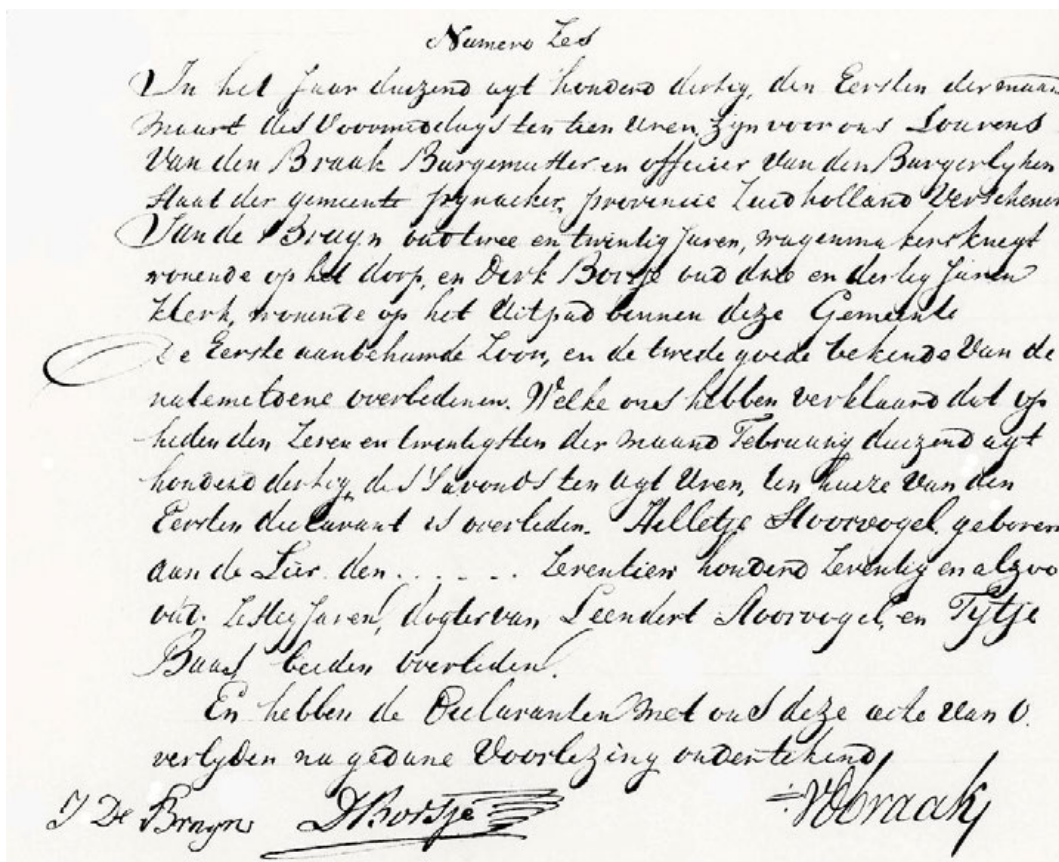 Numero Zes
In het Jaar duizend agt honderd dertig, den Eersten der maand
maart des Voormiddags ten tien uren, zijn voor ons Lourens
Van den Braak Burgemeester en officier Van den Burgerlyken
Staat der gemeente Pynacker, provincie Zuidholland Verschenen
Jan de Bruyn oud twee en twintig Jaren, wagenmakersknegt
wonende op het dorp, en Dirk Bootje oud drie en dertig Jaren
Klerk, wonende op het uitpad binnen deze Gemeente
De Eerste aanbehuwde Zoon, en de twede goede bekende Van de
natemeldene overledenen. Welke ons hebben verklaard dat op
heden den Zeven en twintigsten der maand February duizend agt
honderd dertig, des S'avonds ten agt Uren, ten huize Van den
Eersten declarant is overleden. Hilletje Stoorvogel, geboren
aan de Lier den . . . . . . Zeventien honderd Zeventig en alzoo
oud Zestig Jaren, dogter van Leendert Stoorvogel, en Tytje
Baas beiden overleden.
En hebben de Declaranten met ons deze acte Van O.
verlyden na gedane Voorlezing ondertekend
J De Bruyn D Bootje VDbraak